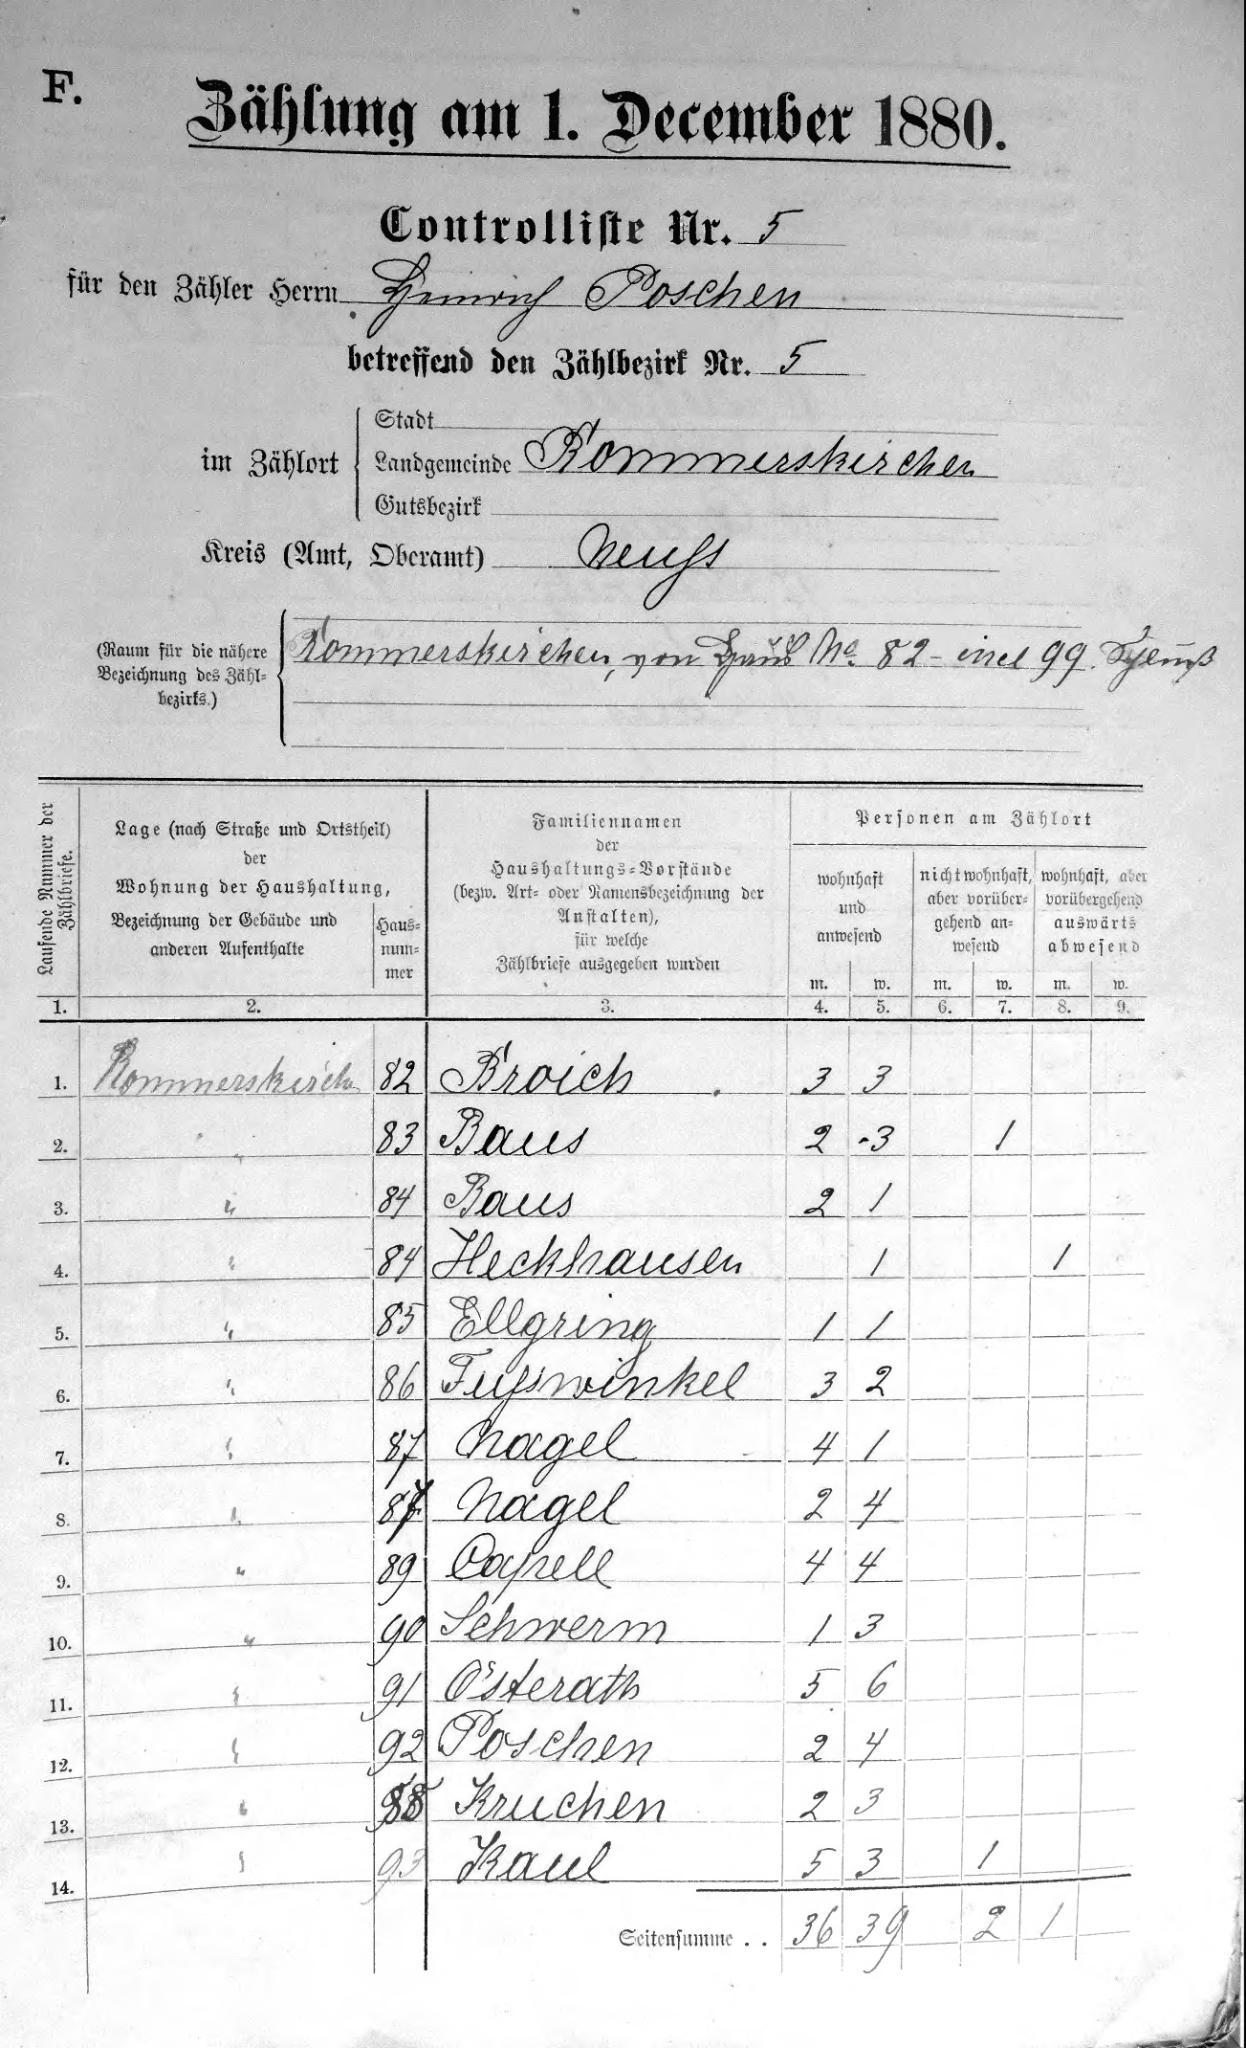 F.
Zählung am 1. December 1880.
Controlliste Nr. 5
für den Zähler Herrn Heinrich Poschen
betreffend den Zählbezirk Nr. 5
im Zählort
Stadt
Landgemeinde Rommerskirchen
Gutsbezirk
Kreis (Amt, Oberamt) Neuss
(Raum für die nähere
Bezeichnung des Zähl-
bezirks.)
Rommerskirchen, von Haus No. 82 - incl 99.
Laufende Nummer der
Zählbriefe.
Lage (nach Straße und Ortstheil)
der
Wohnung der Haushaltung,
Bezeichnung der Gebäude und
anderen Aufenthalte
Haus-
num-
mer
Familiennamen
der
Haushaltungs-Vorstände
(bezw. Art- oder Namensbezeichnung der
Anstalten),
für welche
Zählbriefe ausgegeben wurden
Personen am Zählort
wohnhaft
und
anwesend
nicht wohnhaft,
aber vorüber-
gehend an-
wesend
wohnhaft, aber
vorübergehend
auswärts
abwesend
m. w. m. w. m. w.
1. 2. 3. 4. 5. 6. 7. 8. 9.
1. Rommerskirch 82 Broich 3 3
2. " 83 Baus 2 3 1
3. " 84 Baus 2 1
4. " 84 Heckhausen 1 1
5. " 85 Ellgring 1 1
6. " 86 Fusswinkel 3 2
7. " 87 Nagel 4 1
8. " 87 Nagel 2 4
9. " 89 Capell 4 4
10. " 90 Schwerm 1 3
11. " 91 Osterath 5 6
12. " 92 Poschen 2 4
13. " 88 Kruchen 2 3
14. " 93 Kaul 5 3 1
Seitensumme . . 36 39 2 1